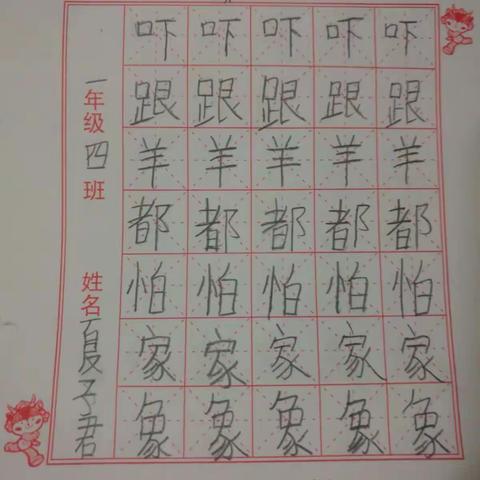 一年级四班
姓名夏子君
吓吓吓吓吓
跟跟跟跟跟
羊羊羊羊羊
都都都都都
怕怕怕怕怕
家家家家家
象象象象象